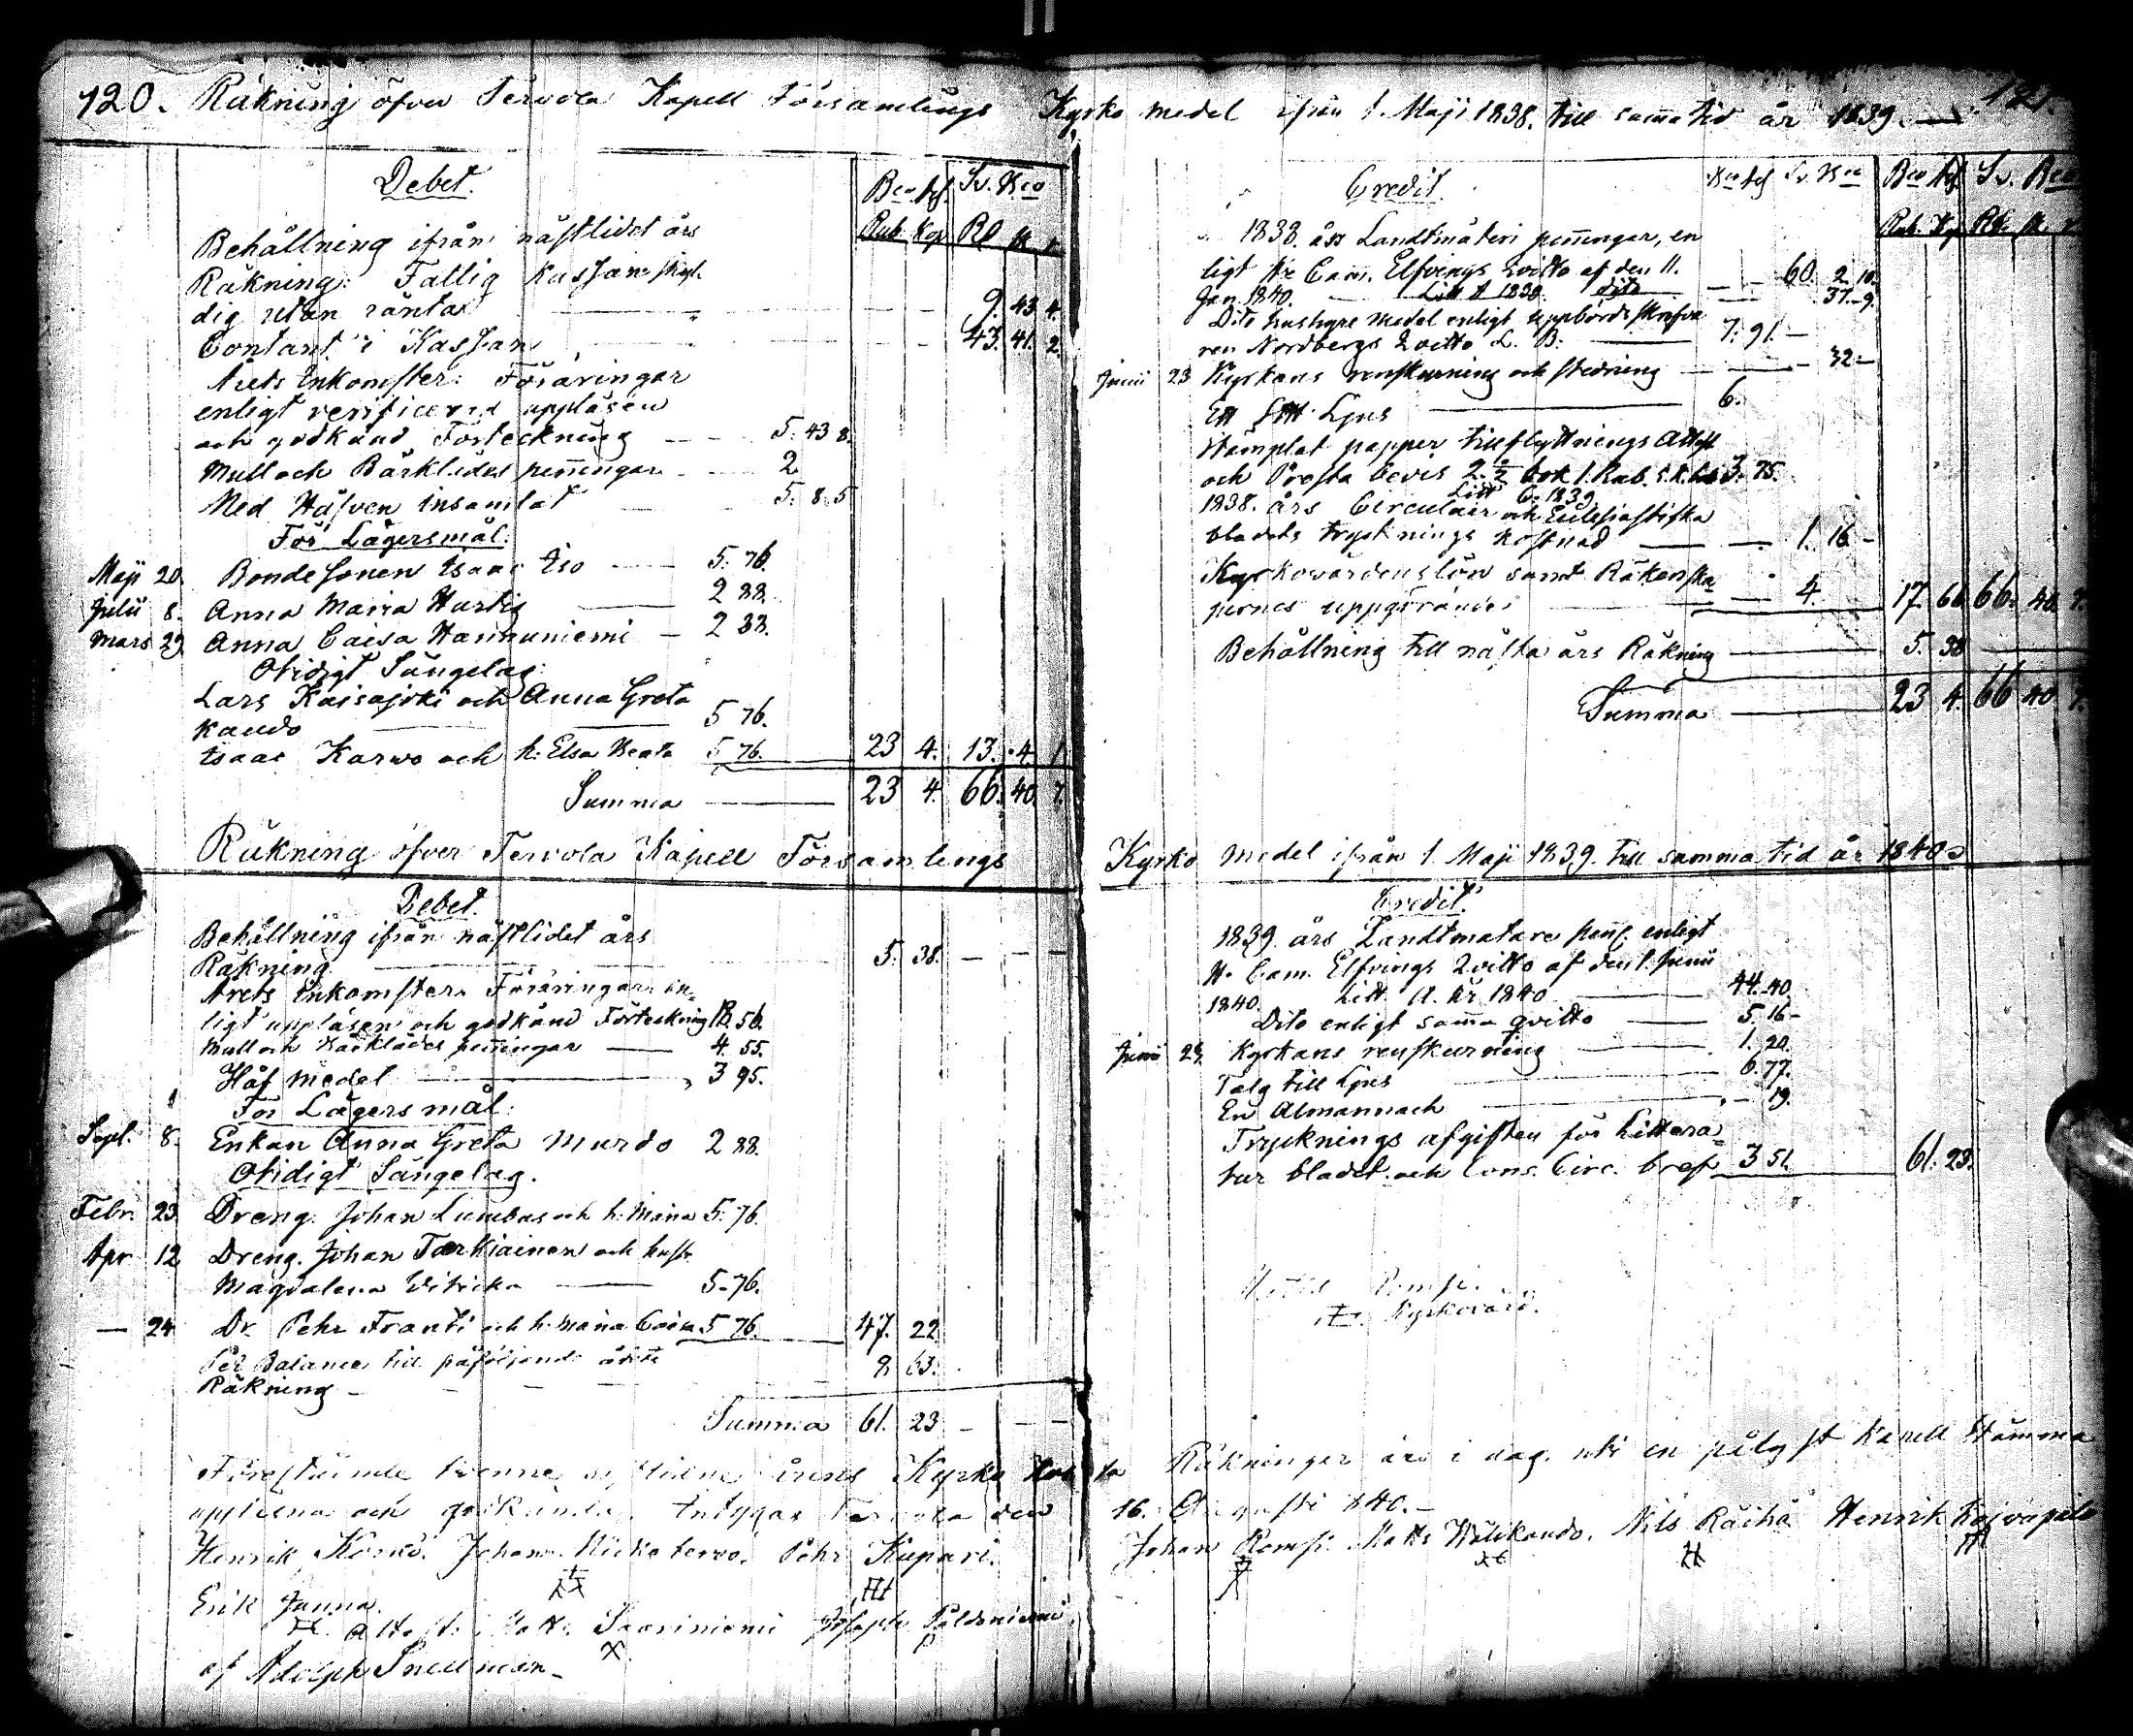 120. Räkning öfver Tervola Kapell Församlings
Debet.
Bco ass. Sv. Bco
Rub. Kop. Rd sk r.
Behållning ifrån nästlidet års
Räkning: Fattig Kassan skyl-
dig utan ränta 9. 43 4.
Contant i Kassan 43. 41. 2.
Årets Inkomster: Föräringar
enligt verificerad uppläsen
och godkänd Förteckning 5. 43 8.
Mull och Bårklädes penningar 2
Med Håfven insamlat 5. 8. 5
För Lägersmål:
Maji 20 Bondesonen Isaac Iso 5. 76.
Julii 8. Anna Maria Hurtig 2 88.
Mars 29 Anna Caisa Hannuniemi 2 88.
Otidigt Sängelag:
Lars Kaisajoki och Anna Greta
Kaudo 5 76.
Isaac Karvo och h: Elsa Beata 5 76. 23 4. 13. 4 1
Summa 23 4. 66. 40 7.
Räkning öfver Tervola Kapell Församlings
Debet.
Behållning ifrån nästlidet års
Räkning 5. 38. — — —
Årets Inkomster. Föräringar en-
ligt uppläsen och godkänd Förteckning 18. 56.
Mull och Bårklädes penningar 4. 55.
Håf medel 3 95.
För Lägersmål:
Sept. 8. Enkan Anna Greta Murdo 2 88.
Otidigt Sängelag.
Febr. 23 Dreng. Johan Lumbus och h: Maria 5. 76.
Apr 12 Dreng. Johan Tarkiainen och hustr
Magdalena 5. 76.
— 24 Dr. Pehr Franti och h: Maria Caisa 5 76. 47. 22
Per Balance till påföljande årets
Räkning 63.
Summa 61. 23 — — —
Föreståände tvenne årens Kyrko
upplästa och godkända. Intygas Tervola den
Henrik Johan Pehr Kupari.
Erik Junna.
Attest. Matts Saariniemi Joseph Paldoniemi
af Adolph Snellman
121.
Kyrko medel ifrån 1. Maji 1838. till samma tid år 1839.
Credit.
Bco ass Sv. Bco Bco ass Sv. Bco
Rub. Kop. Rd. sk. r.
1838. års Landtmäteri penningar, en
ligt Hr Cam. Elfvings qvitto af den 11.
Jan. 1840. Litt A 1839. dito 60. 2. 10.
37. 9.
Dito hushyre medel enligt uppbördsskrifva
ren Nordbergs qvitto L. B. 7. 91. —
Junii 23 Kyrkans renskurning och stedning 32 —
Ett ℔ Ljus 6.
Stämplat papper till flyttnings Attest
och Prosta bevis 3. 75.
Litt C. 1839
1838. års Circulair och Ecclesiastika
bladets trycknings kostnad 1. 16 —
Kyrkovärdens lön samt Räkenska
pernes uppgörande 4. 17. 66 66. 40 7.
Behållning till nästa års Räkning 5. 38
Summa 23 4. 66 40 7.
Kyrko medel ifrån 1 Maji 1839. till samma tid år 1840
Credit.
1839. års Landtmätare penn. enligt
Hr Cam. Elfvings qvitto af den 1. Junii
1840. Litt. A. År 1840 44. 40
Dito enligt samma qvitto 5. 16 —
Junii 24 Kyrkans renskurning 1. 20.
Talg till Ljus 6. 77.
En Almannach 19.
Trycknings afgiften för Littera-
tur bladet och Cons. Circ. bref 3 51. 61. 23.
Rompi.
Kyrkovärd.
Räkningar äro i dag uti en pålyst Kapell Stämma
16. Augusti 1840. —
Johan Rompi. Matts Nils Räihä Henrik